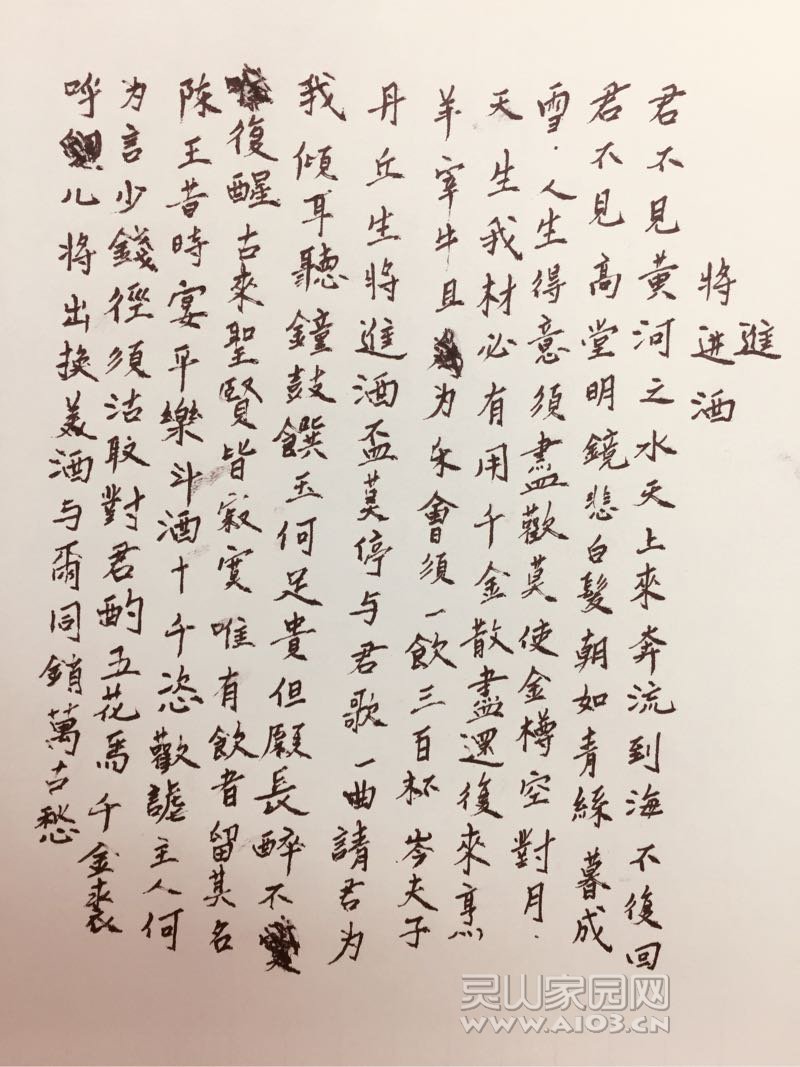 将进酒
進
君不見黃河之水天上來奔流到海不復回
君不見高堂明鏡悲白髮朝如青絲暮成
雪．人生得意須盡歡莫使金樽空對月．
天生我材必有用千金散盡還復來烹
羊宰牛且为乐會須一飲三百杯岑夫子
丹丘生將進酒盃莫停与君歌一曲請君为
我傾耳聽鐘鼓饌玉何足貴但願長醉不
復醒古來聖賢皆寂寞唯有飲者留其名
陈王昔時宴平樂斗酒十千恣歡謔主人何
为言少錢徑須沽取對君酌五花馬千金裘
呼儿將出换美酒与爾同銷萬古愁
灵山家园网
WWW.AI03.CN